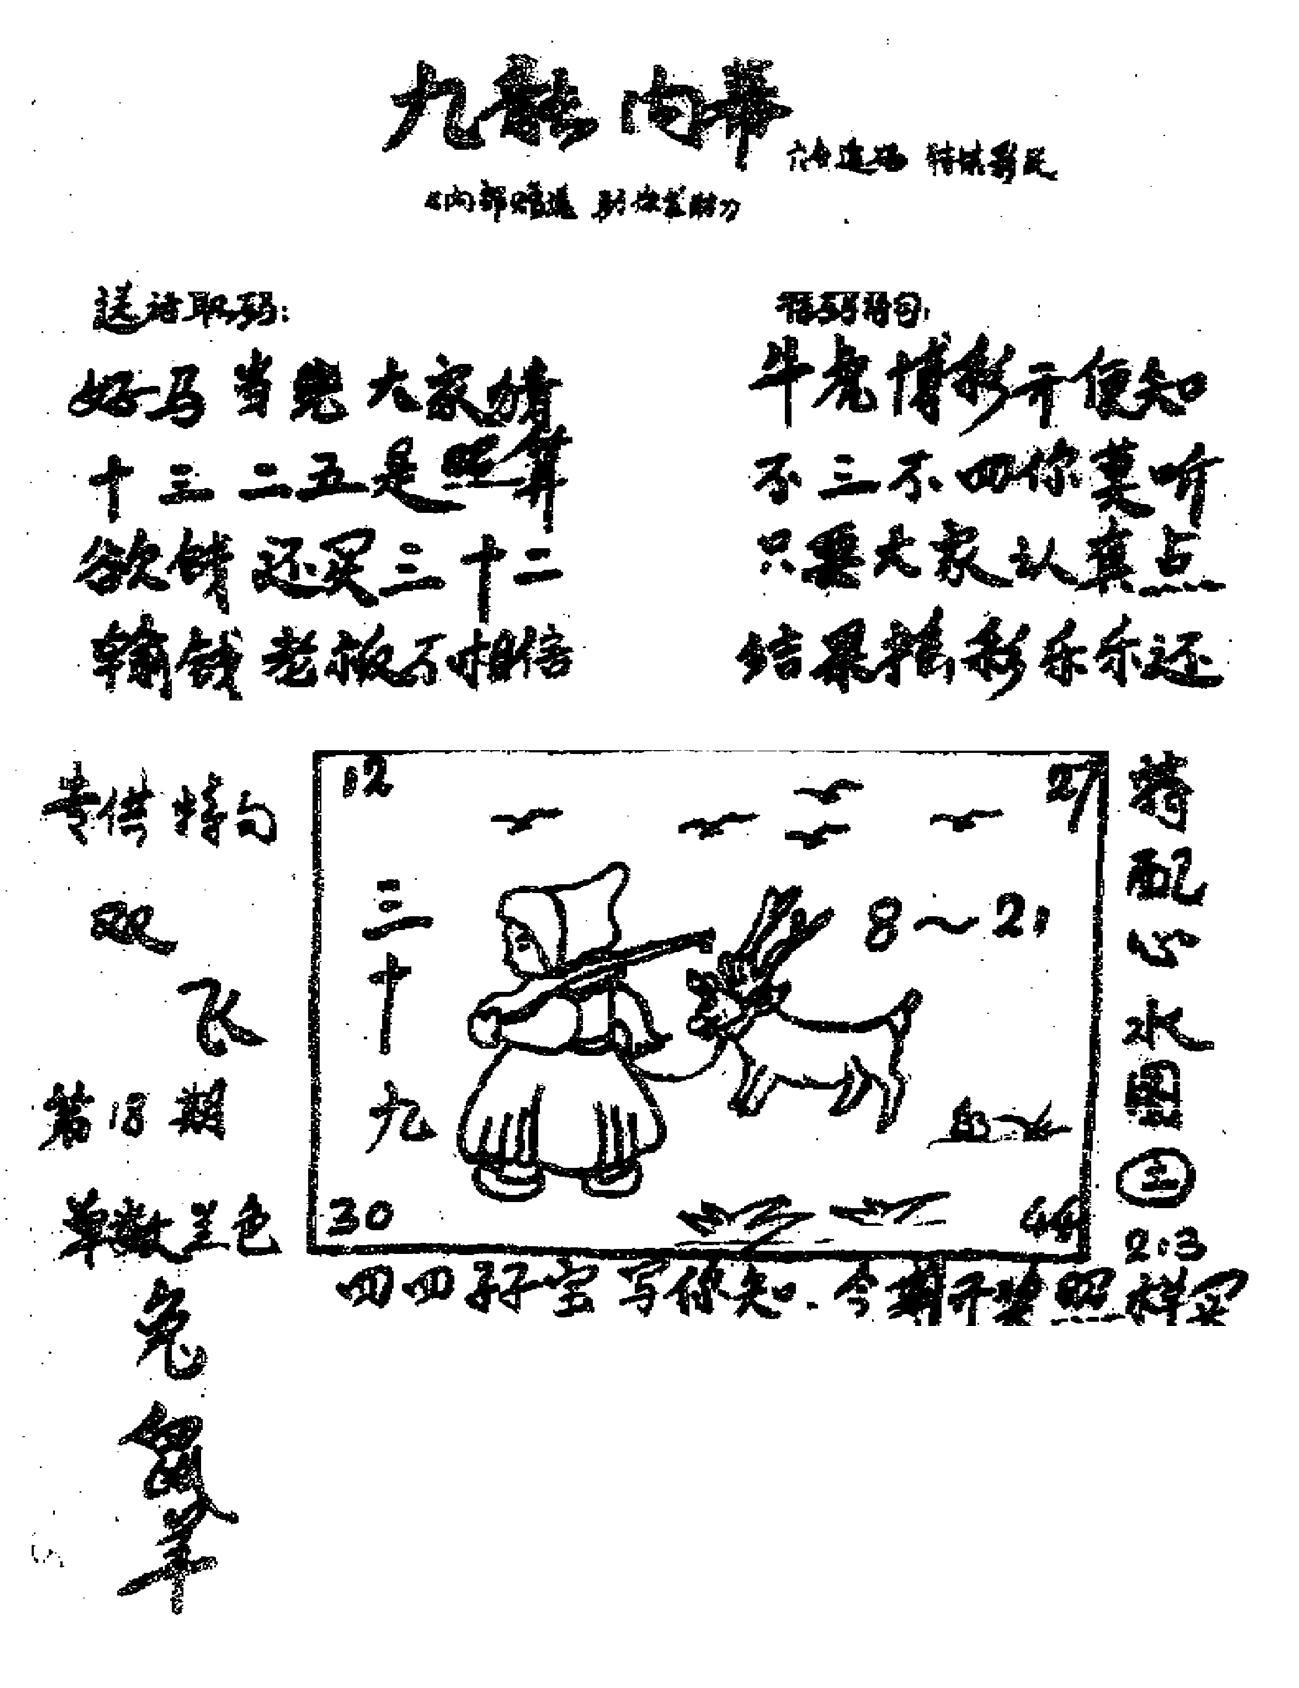 九龙内幕
六合透码 特供彩民
《内部赠送 别欢发财》
送诗取码:
好马当先大家猜
十三二五是照算
欲钱还买三十二
输钱老板不相信
特码诗句:
牛虎博彩开便知
不三不四你莫听
只要大家认真点
结果搞彩乐乐还
专供特句
双
飞
第18期
单数兰色
兔
鼠
羊
12
27
三十九
8~21
30
44
特配心水图
③
2:3
四四孖子宝写你知.今期开奖照样买